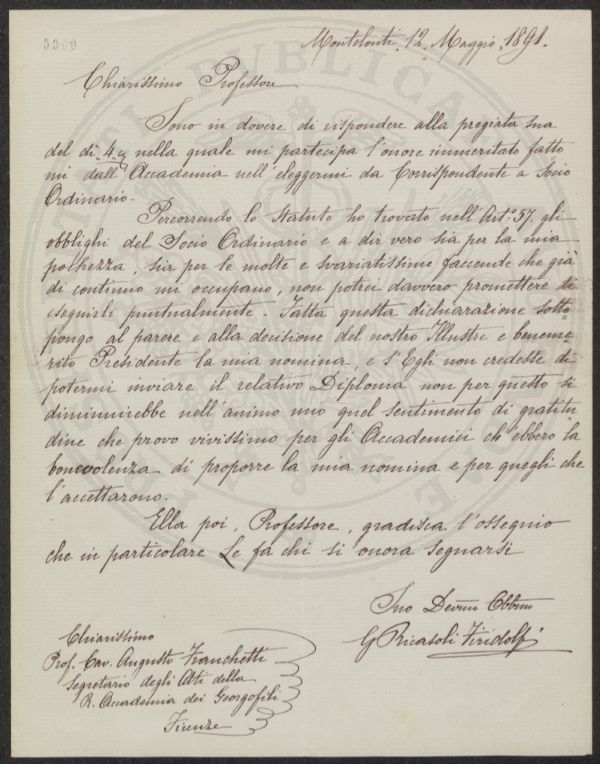 5360
Montelonti 12 Maggio 1891.
Chiarissimo Professore
Sono in dovere di rispondere alla pregiata sua
del dì 4. a nella quale mi partecipa l'onore immeritato fatto
mi dall'Accademia nell'eleggermi da Corrispondente a Socio
Ordinario.
Percorrendo lo Statuto ho trovato nell'Artº 57, gli
obblighi del Socio Ordinario e a dir vero sia per la mia
pochezza, sia per le molte e svariatissime faccende che già
di continuo mi occupano, non potrei davvero promettere di
eseguirli puntualmente. Fatta questa dichiarazione sotto=
pongo al parere e alla decisione del nostro Illustre e beneme
rito Presidente la mia nomina, e s'Egli non credesse di
potermi inviare il relativo Diploma non per questo si
diminuirebbe nell'animo mio quel sentimento di gratitu
dine che provo vivissimo per gli Accademici ch'ebbero la
benevolenza di proporre la mia nomina e per quegli che
l'accettarono.
Ella poi, Professore, gradisca l'ossequio
che in particolare Le fa chi si onora segnarsi
Suo Devmo Obbmo
G Ricasoli Firidolfi
Chiarissimo
Prof. Cav. Augusto Franchetti
Segretario degli Atti della
R. Accademia dei Georgofili
Firenze